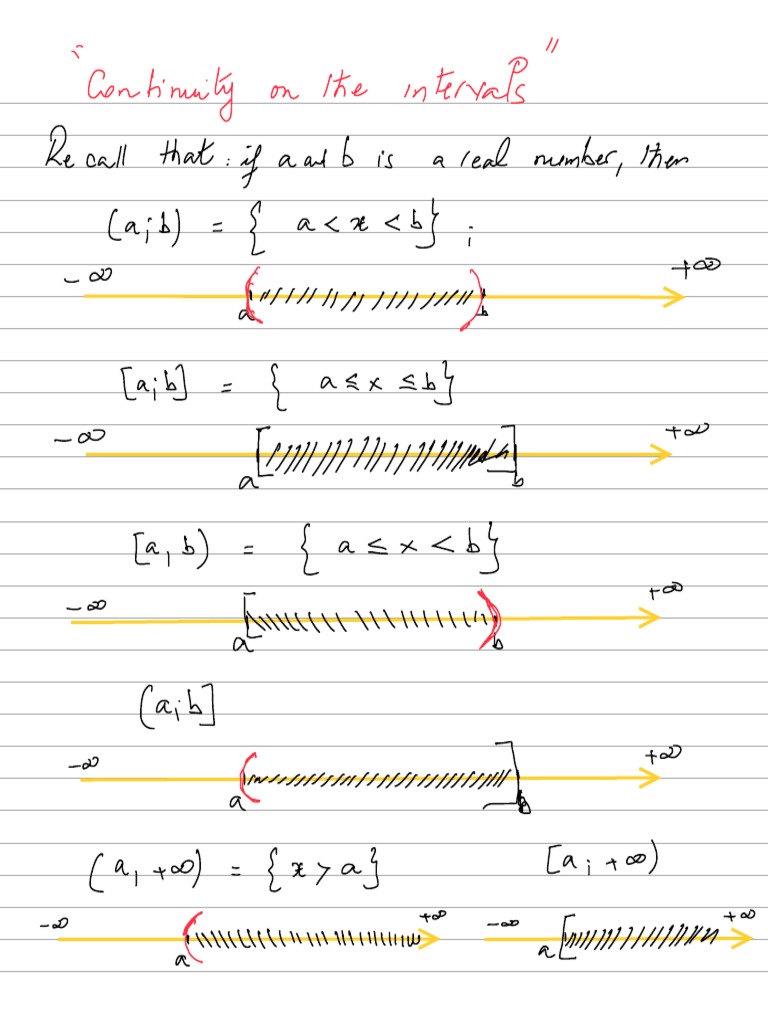 "Continuity on the intervals"
Recall that: if a and b is a real number, then
(a;b) = { a < x < b} ;
-∞ +∞
a b
[a;b] = { a ≤ x ≤ b}
-∞ +∞
a b
[a, b) = { a ≤ x < b}
-∞ +∞
a b
(a;b]
-∞ +∞
a b
(a, +∞) = {x > a} [a; +∞)
-∞ +∞ -∞ +∞
a a